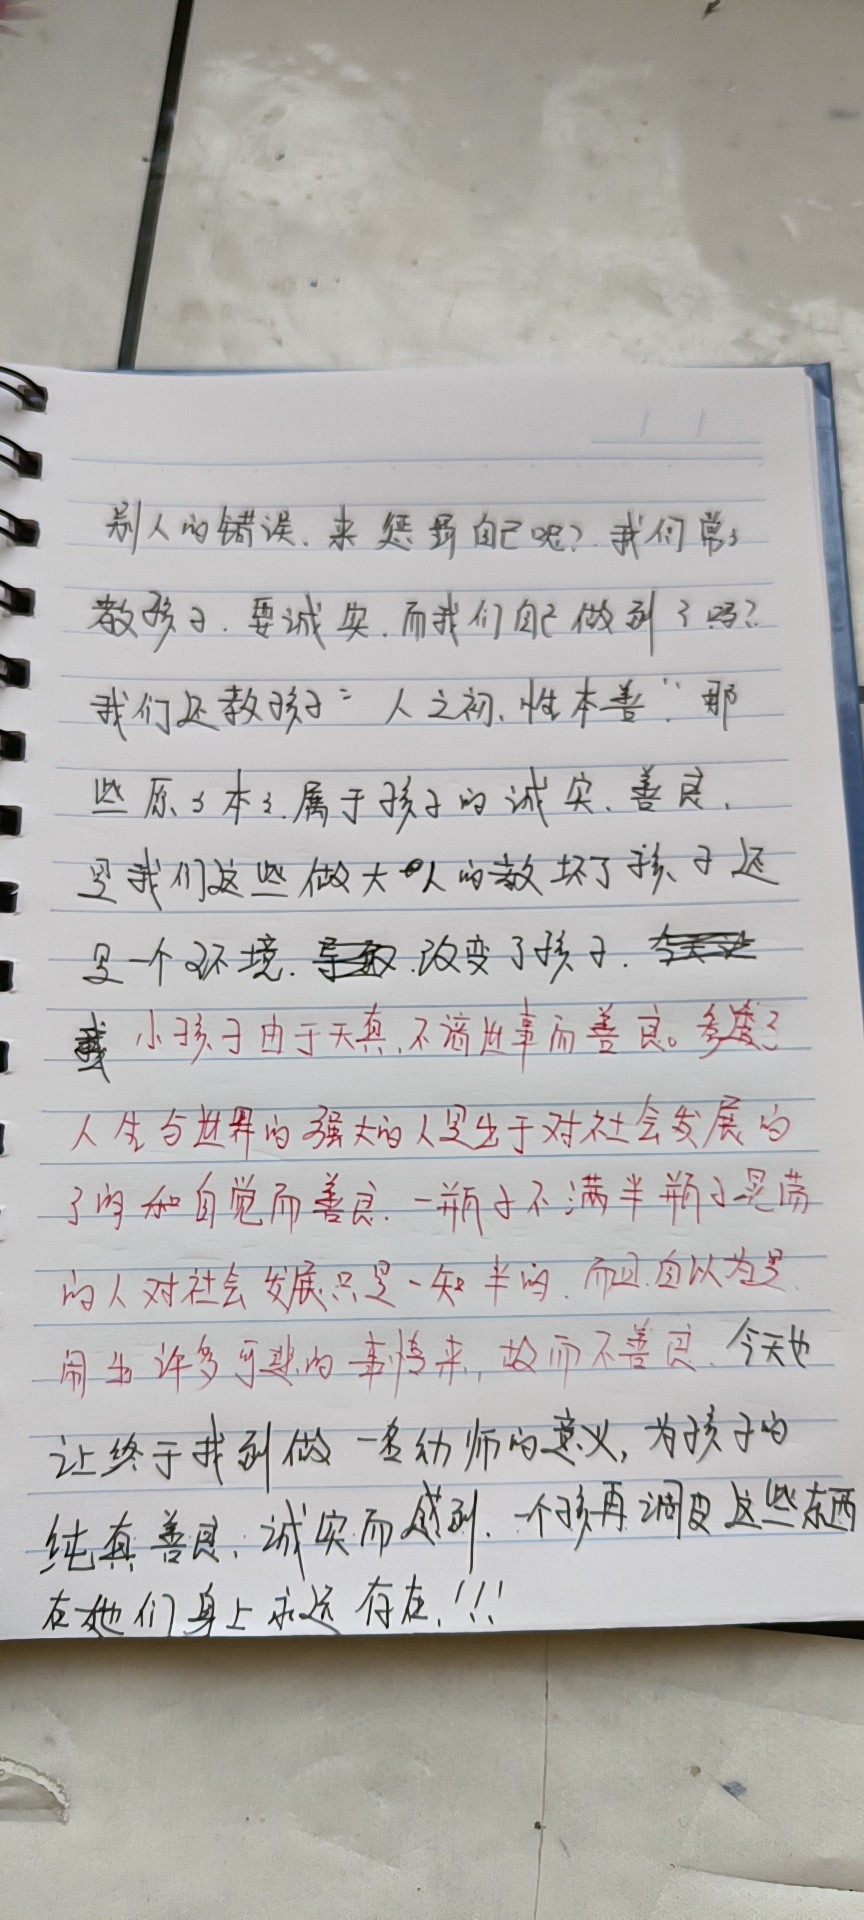 别人的错误、来惩罚自己呢？我们常々
教孩子．要诚实．而我们自己做到了吗？
我们还教孩子“人之初、性本善”．那
些原々本々．属于孩子的诚实、善良．
是我们这些做大人的教坏了孩子还
是一个环境．改变了孩子．
小孩子由于天真．不谙世事而善良。参废了
人生与世界的强大的人是出于对社会发展的
了的和自觉而善良．一瓶子不满半瓶子晃荡
的人对社会发展只是一知半的．而且．自以为是．
闹出许多可悲的事情来，故而不善良．今天也
让终于找到做一名幼师的意义，为孩子的
纯真善良、诚实而感到．一个孩再调皮这些东西
在她们身上永远存在．！！！